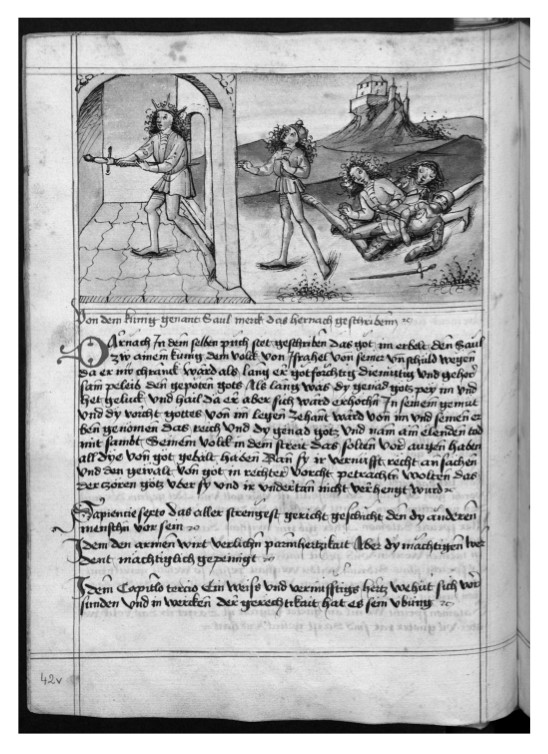 Von dem kunig genant Saul merck das hernach geschriben
Darnach Jn dem selben puch stet geschriben das got im erbelt den Saul
zw ainem kunig dem volk von Jsrahel von seiner vnschuld wegen
da er nit chranck ward als lang er gotforchtig diemuttig vnd gehor
sam pelaib den gepoten gots Als lang was dy genad gotz pey im vnd
het geluck vnd hail da er aber sich ward erhochn Jn seinem gemut
vnd dy vorcht gottes von im legen zehant ward von im vnd seinen er
ben genomen das reich vnd dy genad gotz vnd nam ain elenden tod
mit sambt seinem volck in dem streit das solten vor augen haben
all dye von got gebalt haben Dan sy ir vernufft recht an sachen
vnd den gewalt von got in rechter vorcht petrachtn wolten das
der czoren gotz vber sy vnd ir vndertan nicht verhengt wurd
Sapiencie sexto das aller strengest gericht geschicht den dy anderen
menschn vor sein
Jdem den armen wirt verlichn parmhertzikait Aber dy machtigen wer
dent machtiglich gepeinigt
Jdem Capitulo tercio Ein weiss vnd vernufftigs hertz wehut sich vor
sunden vnd in wercken der gerechtikait hat es sein vbung
42v